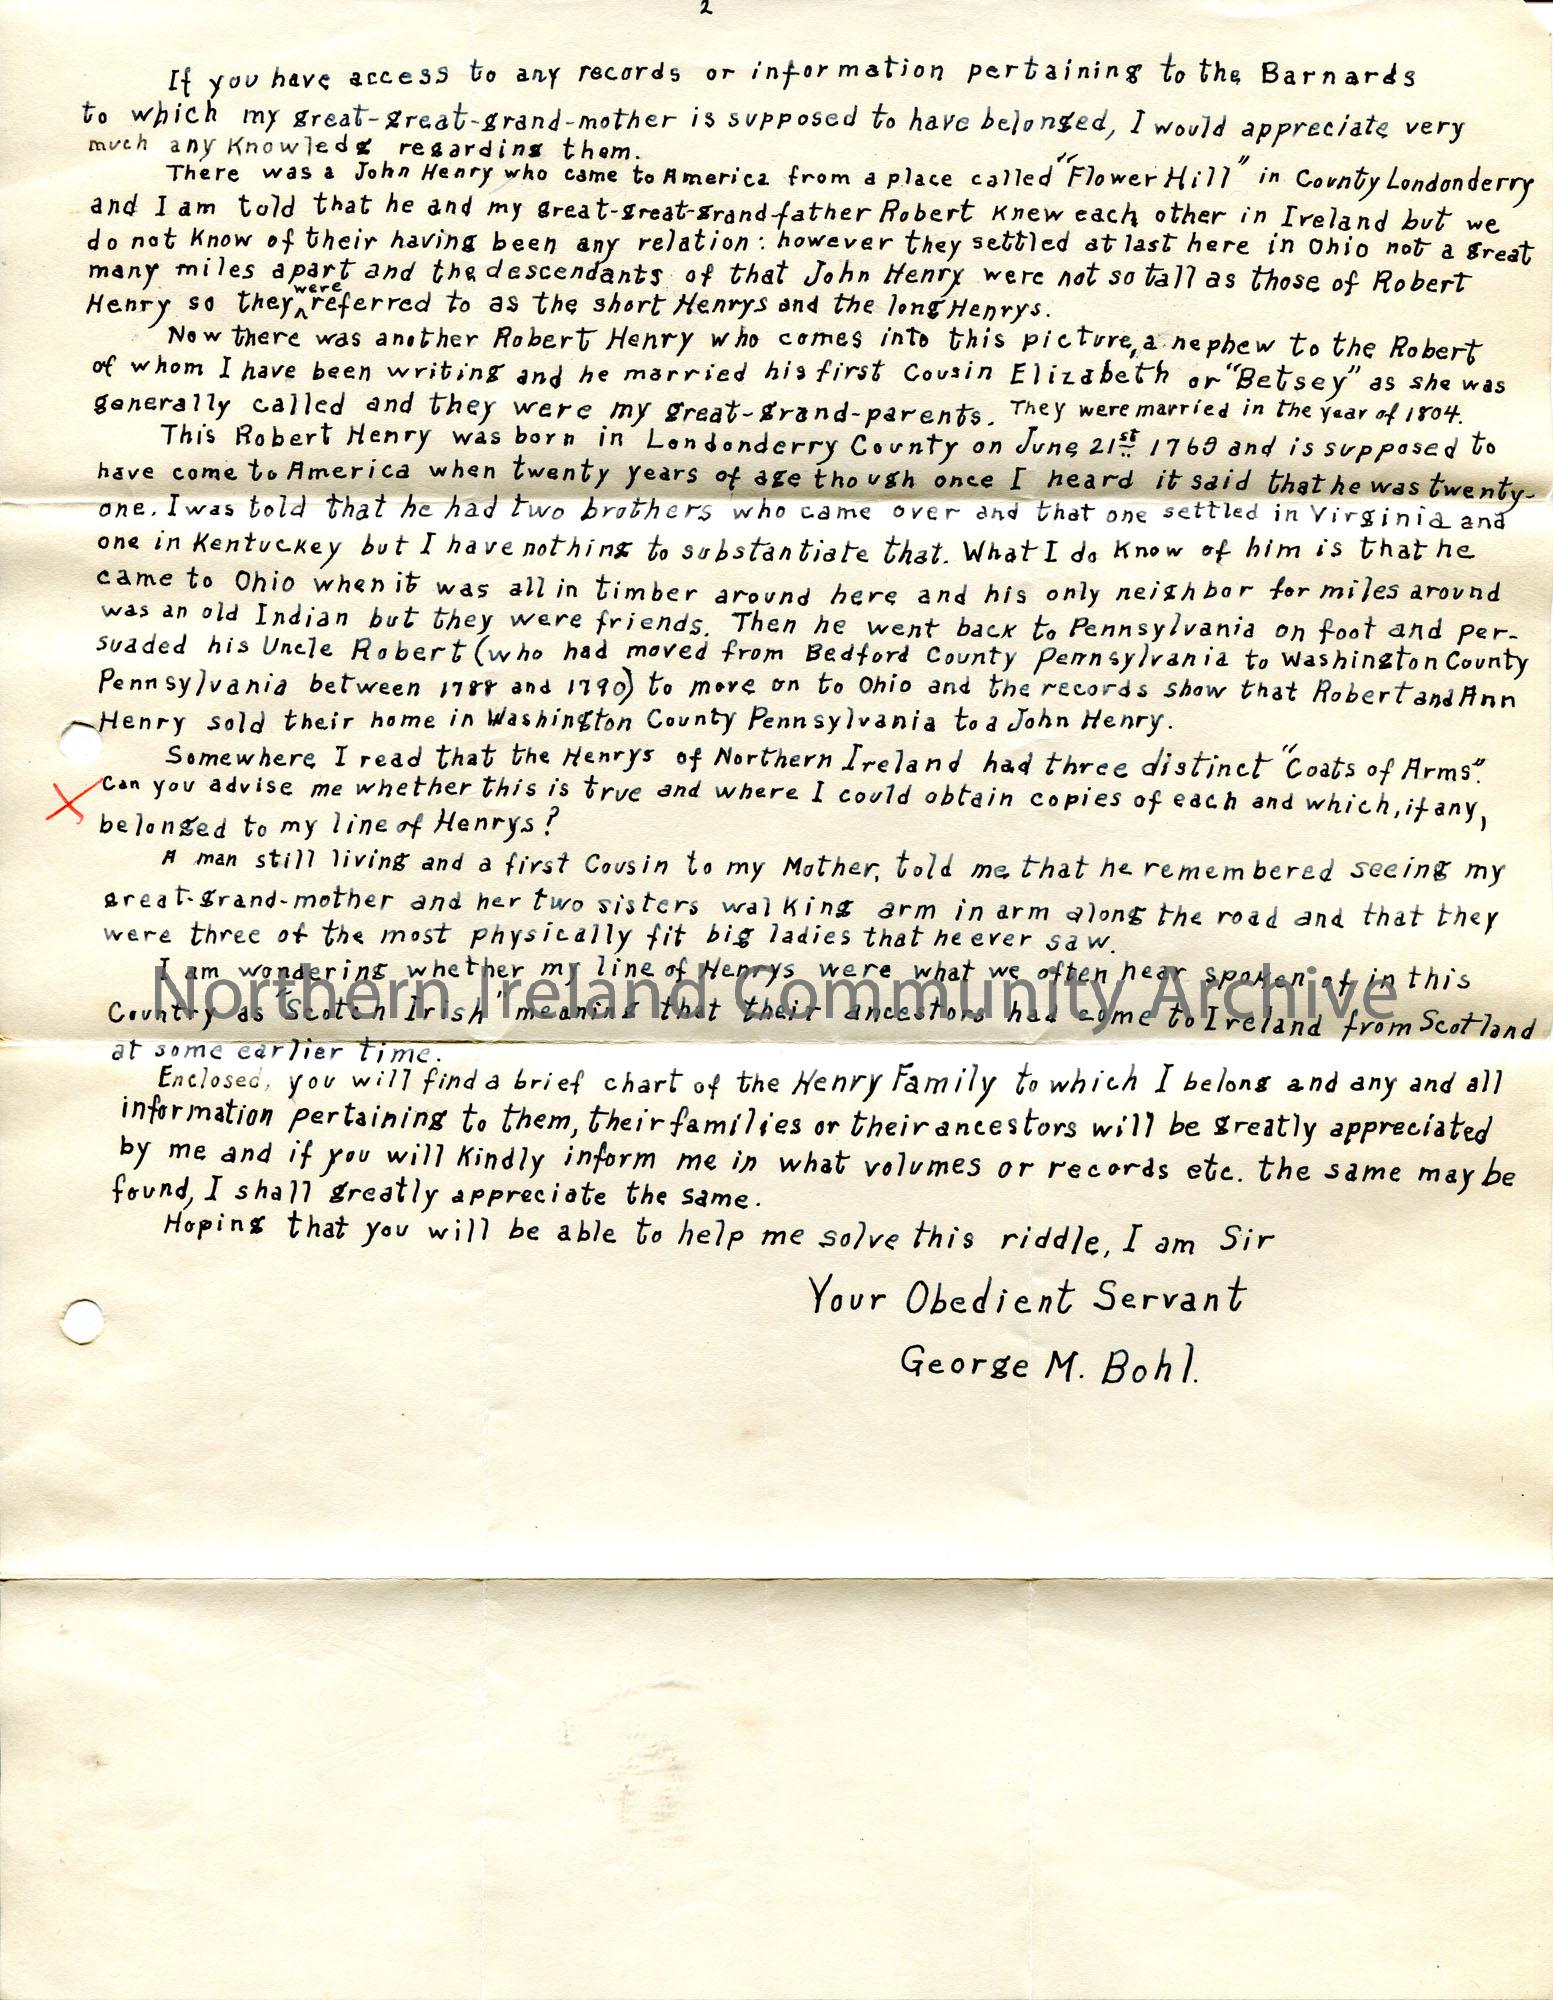 2
If you have access to any records or information pertaining to the Barnards
to which my great-great-grand-mother is supposed to have belonged, I would appreciate very
much any Knowledg regarding them.
There was a John Henry who came to America from a place called "Flower Hill" in County Londonderry
and I am told that he and my great-great-grand-father Robert Knew each other in Ireland but we
do not Know of their having been any relation: however they settled at last here in Ohio not a great
many miles apart and the descendants of that John Henry were not so tall as those of Robert
Henry so they were referred to as the short Henrys and the long Henrys.
Now there was another Robert Henry who comes into this picture, a nephew to the Robert
of whom I have been writing and he married his first Cousin Elizabeth or "Betsey" as she was
generally called and they were my great-grand-parents. They were married in the year of 1804.
This Robert Henry was born in Londonderry County on June 21st 1769 and is supposed to
have come to America when twenty years of age though once I heard it said that he was twenty-
one. I was told that he had two brothers who came over and that one settled in Virginia and
one in Kentucky but I have nothing to substantiate that. What I do Know of him is that he
came to Ohio when it was all in timber around here and his only neighbor for miles around
was an old Indian but they were friends. Then he went back to Pennsylvania on foot and per-
suaded his Uncle Robert (who had moved from Bedford County Pennsylvania to Washington County
Pennsylvania between 1788 and 1790) to move on to Ohio and the records show that Robert and Ann
Henry sold their home in Washington County Pennsylvania to a John Henry.
Somewhere I read that the Henrys of Northern Ireland had three distinct "Coats of Arms".
Can you advise me whether this is true and where I could obtain copies of each and which, if any,
belonged to my line of Henrys?
A man still living and a first Cousin to my Mother, told me that he remembered seeing my
great-grand-mother and her two sisters walking arm in arm along the road and that they
were three of the most physically fit big ladies that he ever saw.
I am wondering whether my line of Henrys were what we often hear spoken of in this
Northern Ireland Community Archive
Country as "Scotch Irish" meaning that their ancestors had come to Ireland from Scotland
at some earlier time.
Enclosed, you will find a brief chart of the Henry Family to which I belong and any and all
information pertaining to them, their families or their ancestors will be greatly appreciated
by me and if you will Kindly inform me in what volumes or records etc. the same may be
found, I shall greatly appreciate the same.
Hoping that you will be able to help me solve this riddle, I am Sir
Your Obedient Servant
George M. Bohl.